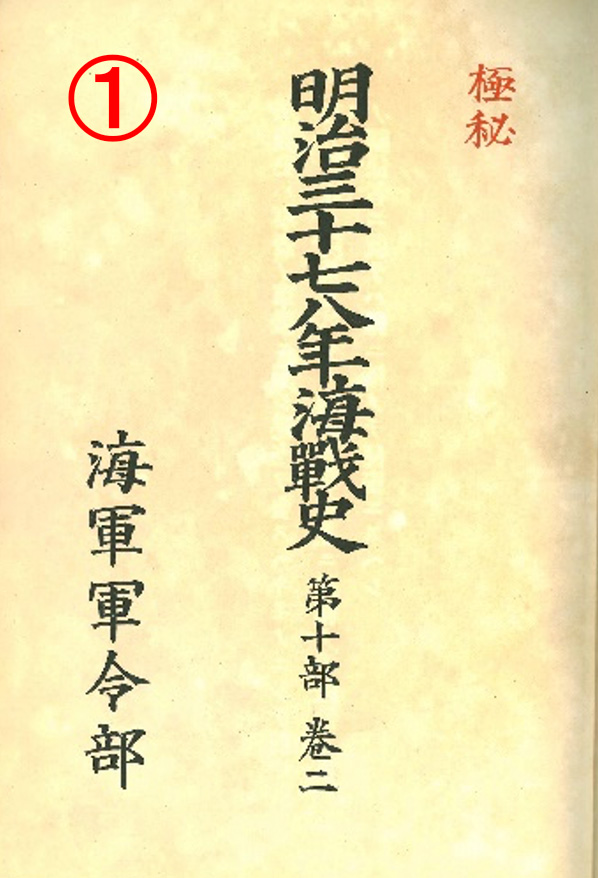 ①
極秘
明治三十七八年海戰史 第十部 卷二
海軍軍令部